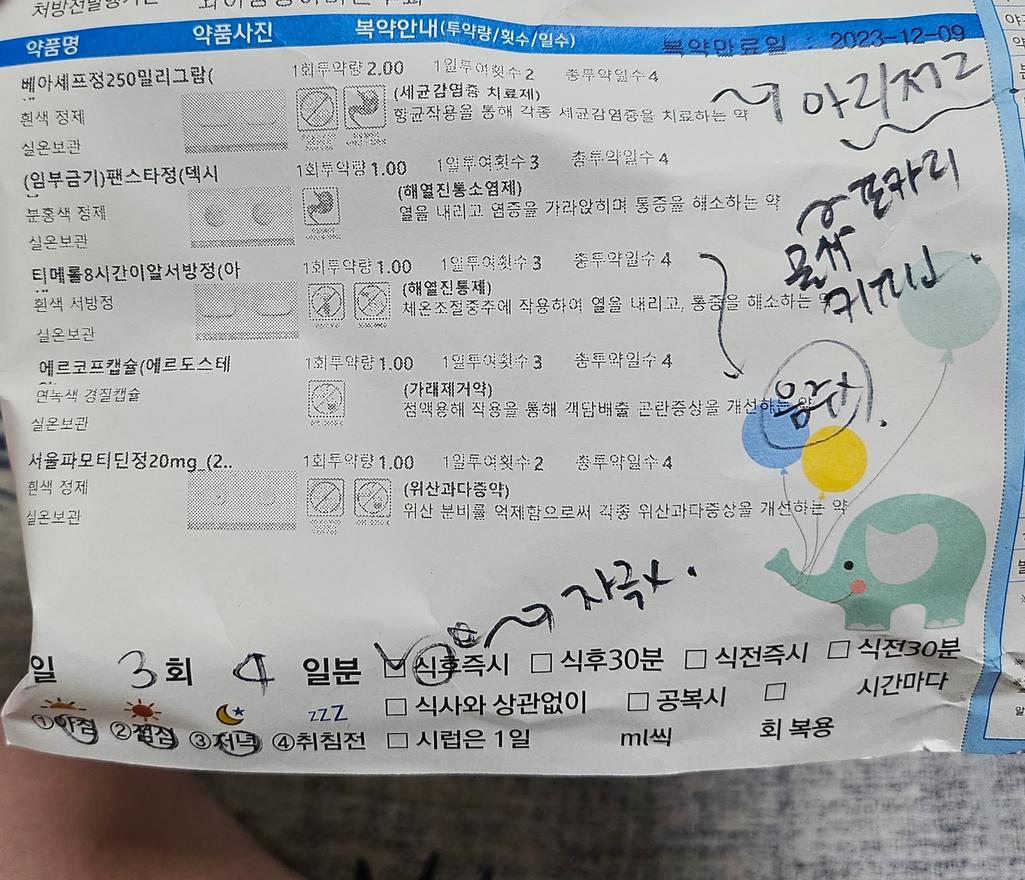 약품명 약품사진 복약안내(투약량/횟수/일수) 복약만료일 : 2023-12-09
베아세프정250밀리그람( 1회투약량2.00 1일투여횟수2 총투약일수4
흰색 정제 (세균감염증 치료제)
실온보관 항균작용을 통해 각종 세균감염증을 치료하는 약
아리저2
(임부금기)팬스타정(덱시 1회투약량1.00 1일투여횟수3 총투약일수4
분홍색 정제 (해열진통소염제)
실온보관 열을 내리고 염증을 가라앉히며 통증을 해소하는 약
포카리
티메롤8시간이알서방정(아 1회투약량1.00 1일투여횟수3 총투약일수4
흰색 서방정 (해열진통제)
실온보관 체온조절중추에 작용하여 열을 내리고, 통증을 해소하는 약
에르코프캡슐(에르도스테 1회투약량1.00 1일투여횟수3 총투약일수4
연녹색 경질캡슐 (가래제거약)
실온보관 점액용해 작용을 통해 객담배출 곤란증상을 개선하는 약
서울파모티딘정20mg_(2.. 1회투약량1.00 1일투여횟수2 총투약일수4
흰색 정제 (위산과다증약)
실온보관 위산 분비를 억제함으로써 각종 위산과다증상을 개선하는 약
자극x.
일 3회 4 일분 ☐ 식후즉시 ☐ 식후30분 ☐ 식전즉시 ☐ 식전30분
☐ 식사와 상관없이 ☐ 공복시 ☐ 시간마다
①아침 ②점심 ③저녁 ④취침전 ☐ 시럽은 1일 ml씩 회 복용